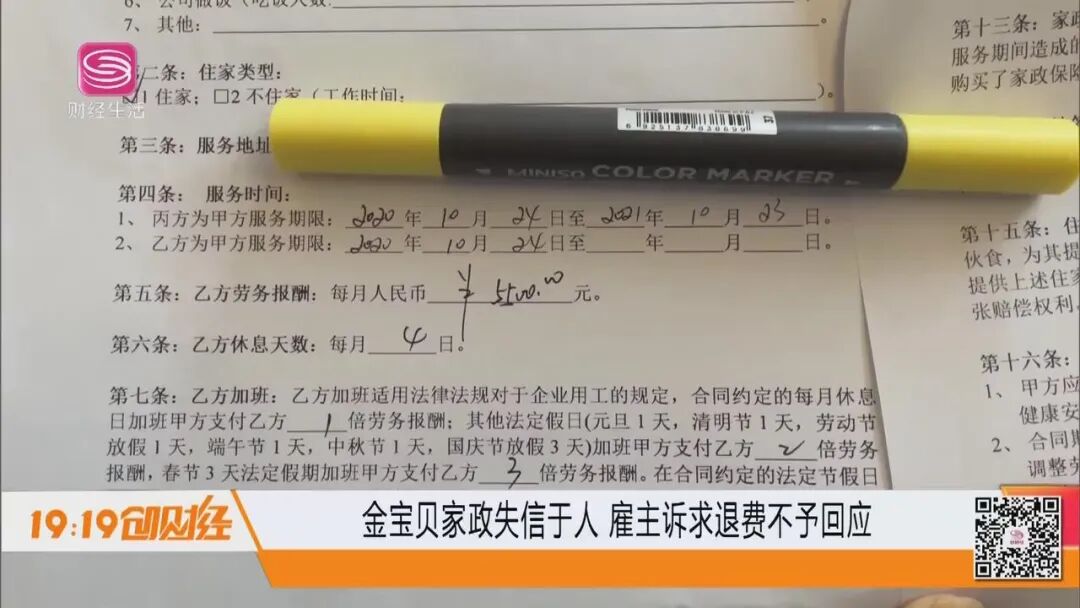 6、公司做饭（吃饭人数:
7、其他:
。
第二条：住家类型：
☑1 住家；□2 不住家（工作时间:
）。
财经生活
第三条：服务地址
6 925137 838699
37
MINISO COLOR MARKER
第四条： 服务时间：
1、 丙方为甲方服务期限：2020年 10月 24日至 2021年 10月 23日。
2、 乙方为甲方服务期限：2020年 10月 24日至 年 月 日。
第五条：乙方劳务报酬：每月人民币 ¥ 5500.00 元。
第六条：乙方休息天数：每月 4 日。
第七条：乙方加班：乙方加班适用法律法规对于企业用工的规定，合同约定的每月休息
日加班甲方支付乙方 1 倍劳务报酬；其他法定假日(元旦1天，清明节1天，劳动节
放假1天，端午节1天，中秋节1天，国庆节放假3天)加班甲方支付乙方 2 倍劳务
报酬，春节3天法定假期加班甲方支付乙方 3 倍劳务报酬。在合同约定的法定节假日
第十三条：家政
服务期间造成的
购买了家政保险
第十五条：住
伙食，为其提
提供上述住家
张赔偿权利。
第十六条：
1、 甲方应
健康安
2、 合同期
调整劳
19:19创财经
金宝贝家政失信于人 雇主诉求退费不予回应